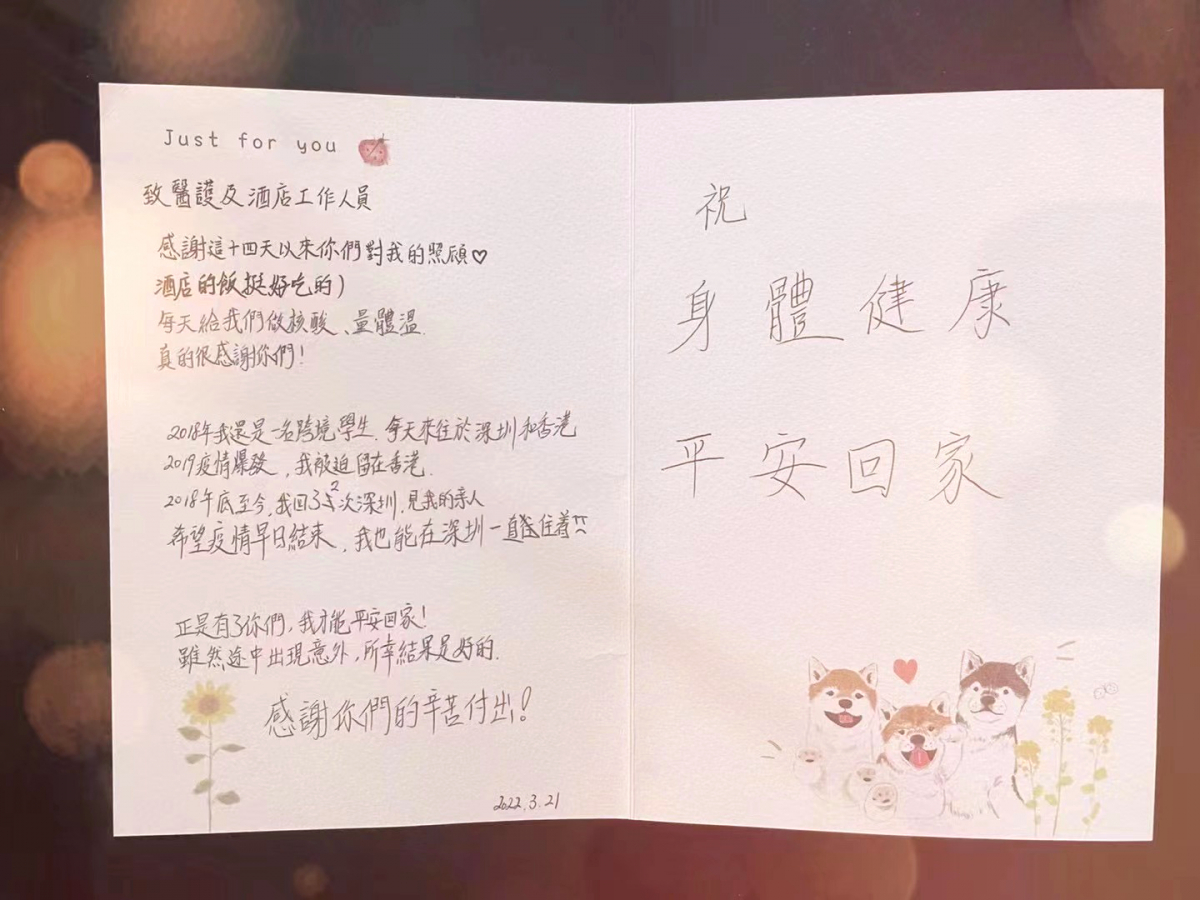 Just for you
致醫護及酒店工作人員
感謝這十四天以來你們對我的照顧♡
酒店的飯挺好吃的)
每天給我們做核酸、量體溫.
真的很感謝你們!
2018年我還是一名跨境學生.每天來往於深圳和香港
2019疫情爆發,我被迫留在香港.
2018年底至今,我回了2次深圳,見我的亲人
希望疫情早日結束,我也能在深圳一直住着
正是有了你們,我才能平安回家!
雖然途中出現意外,所幸結果是好的.
感謝你們的辛苦付出!
2022.3.21
祝
身體健康
平安回家